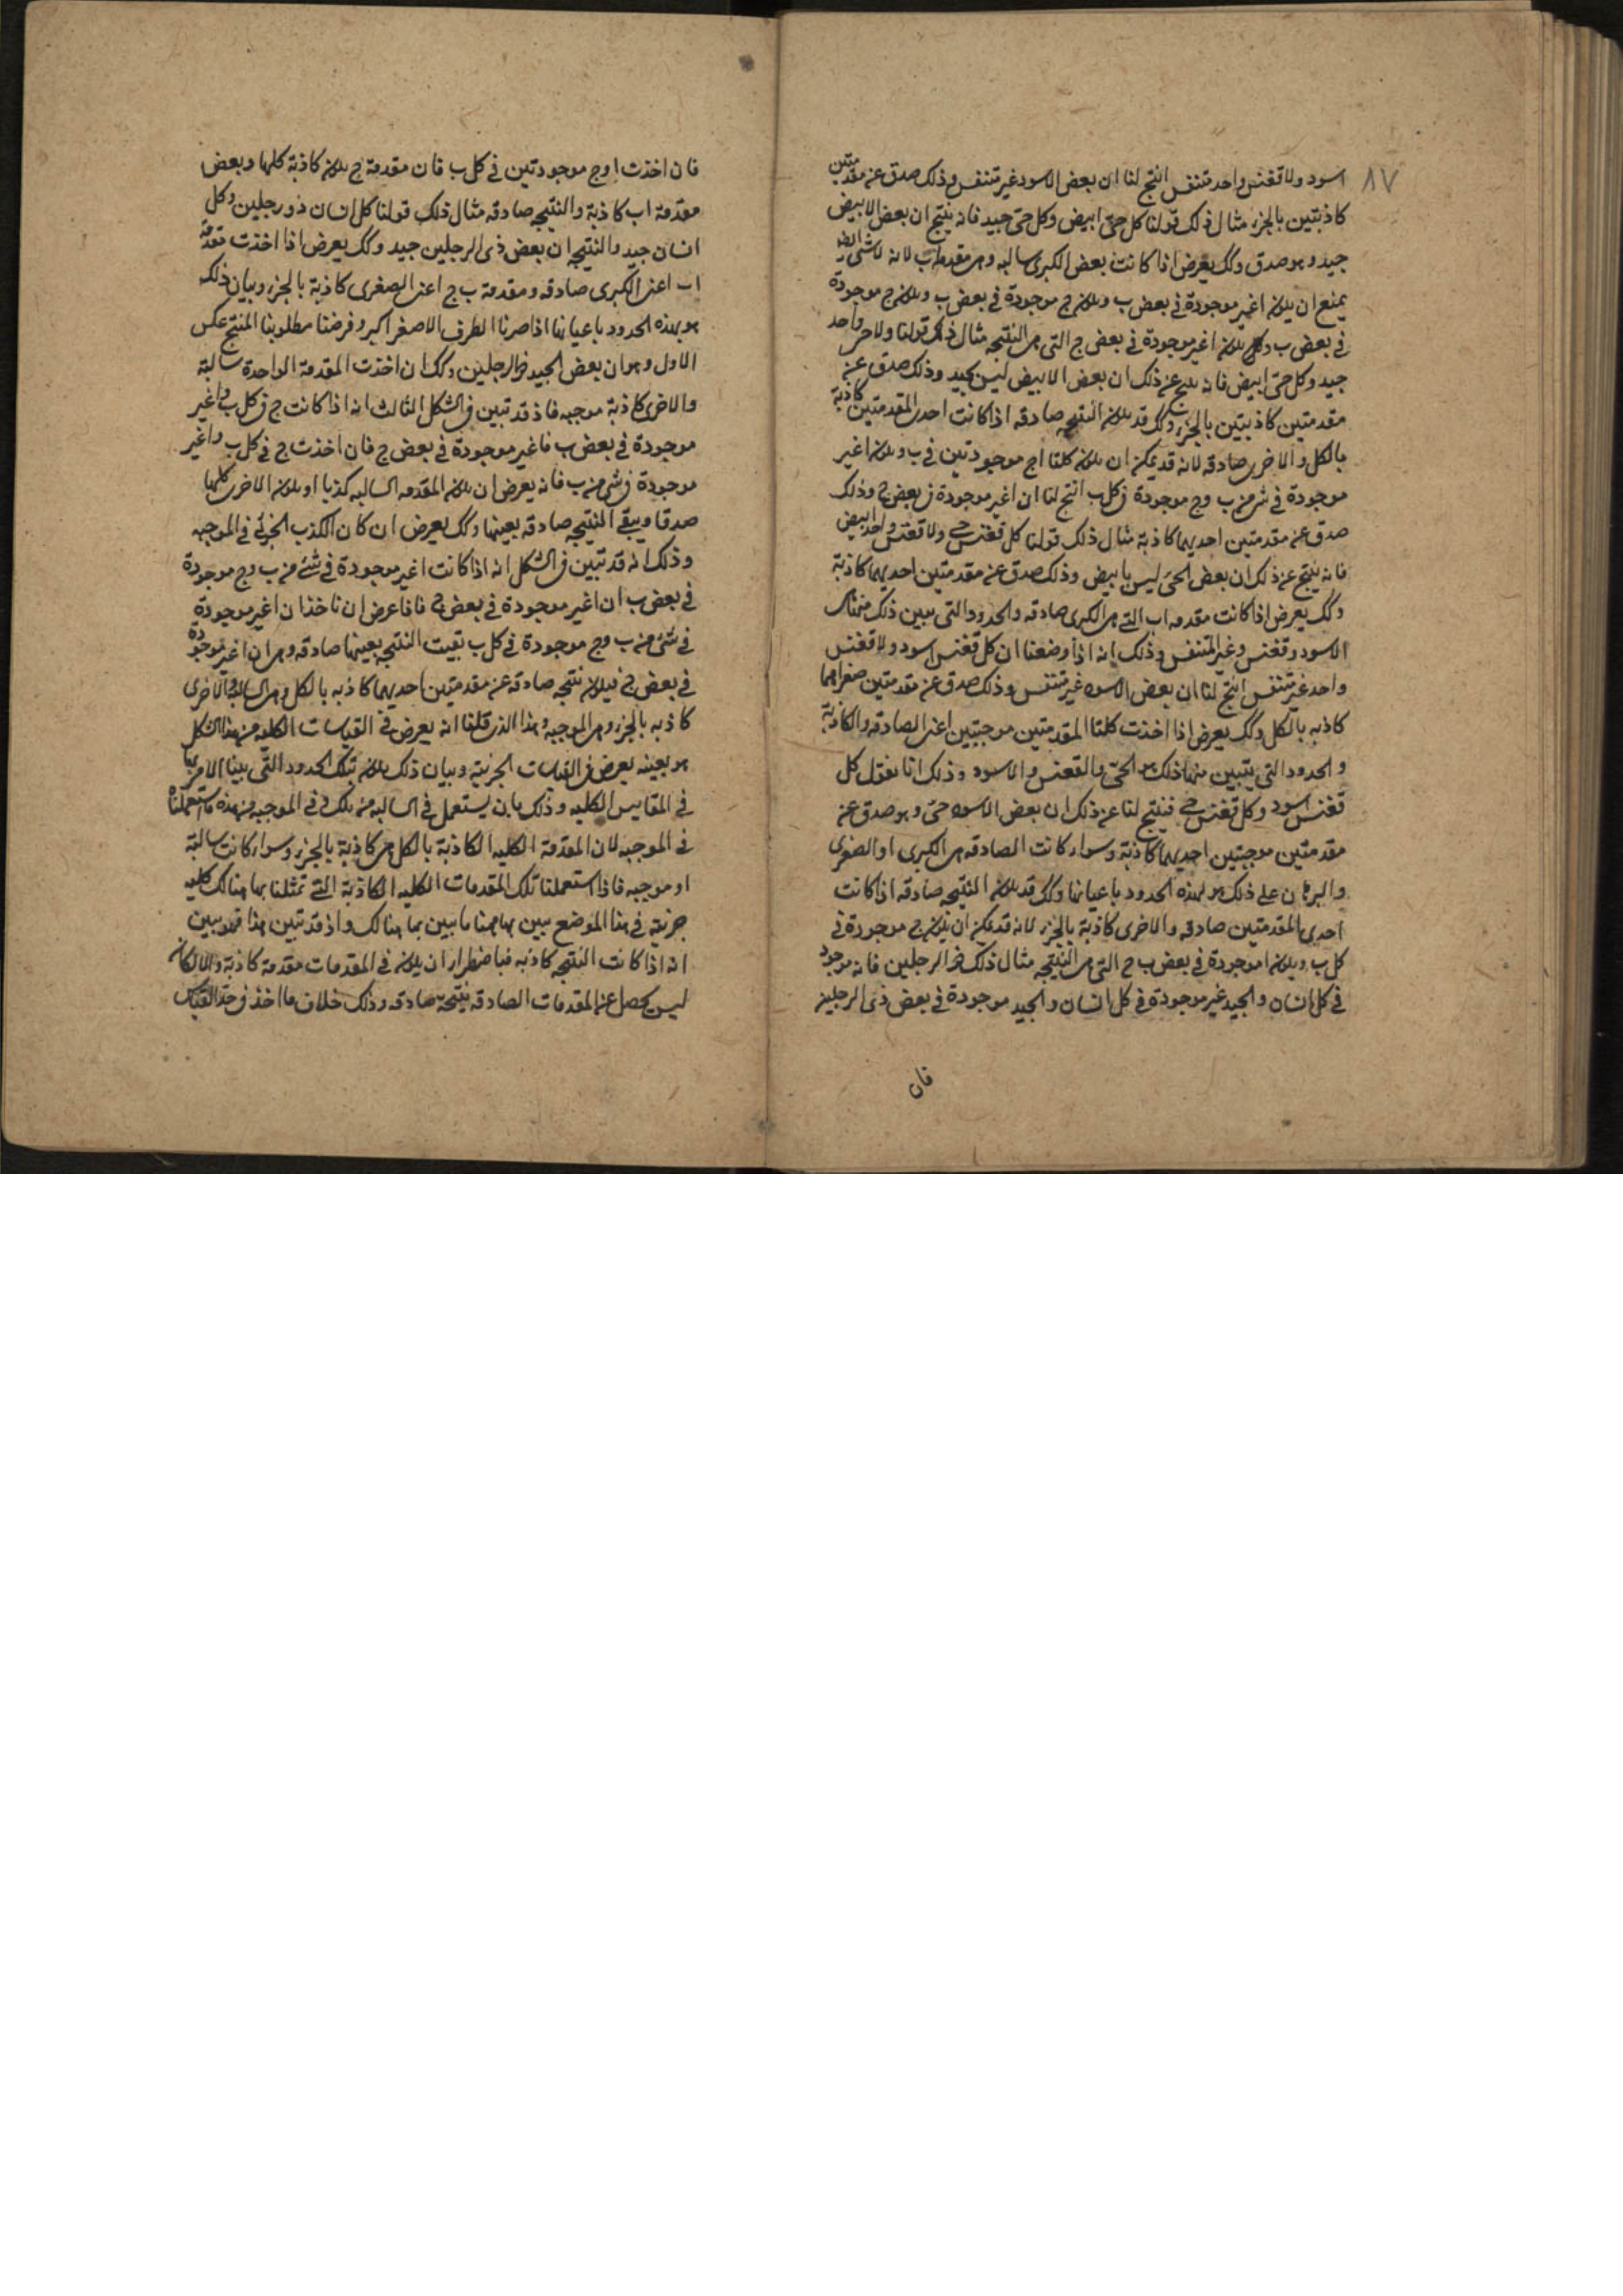 ٨٧
اسود ولا ققنس واحد متنفس انتج لنا ان بعض الاسود غير متنفس وذلك صدق عن مقدمتين
كاذبتين بالجزء مثال ذلك قولنا كل حى ابيض وكل حى جيد فانه ينتج ان بعض الابيض
جيد وهو صدق وكك يعرض اذا كانت بعض الكبرى سالبه وهى مقدمة اب لانه لا شى
يمنع ان يكون ا غير موجودة فى بعض ب ويكون ج موجودة فى بعض ب ويكون ج موجودة
فى بعض ب ويكون ا غير موجودة فى بعض ج التى هى النتيجه مثال ذلك قولنا ولا حى واحد
جيد وكل حى ابيض فانه ينتج عن ذلك ان بعض الابيض ليس بجيد وذلك صدق عن
مقدمتين كاذبتين بالجزء وكك قد يكون النتيجه صادقه اذا كانت احدى المقدمتين كاذبة
بالكل والاخرى صادقه لانه قد يمكن ان يكون كلتا اج موجودتين فى ب ويكون ا غير
موجودة فى شى من ب وج موجودة فى كل ب انتج لنا ان ا غير موجودة فى بعض ج وذلك
صدق عن مقدمتين احديهما كاذبة مثال ذلك قولنا كل ققنس حى ولا ققنس واحد ابيض
فانه ينتج عن ذلك ان بعض الحى ليس بابيض وذلك صدق عن مقدمتين احديهما كاذبة
وكك يعرض اذا كانت مقدمه اب التى هى الكبرى صادقه والحدود التى يبين ذلك منها
الاسود وققنس وغير المتنفس وذلك انه اذا وضعنا ان كل ققنس اسود ولا ققنس
واحد غير متنفس انتج لنا ان بعض الاسود غير متنفس وذلك صدق عن مقدمتين صغراهما
كاذبه بالكل وكك يعرض اذا اخذت كلتا المقدمتين موجبتين اعنى الصادقه والكاذبة
والحدود التى يتبين منها ذلك هو الحى والققنس والاسود وذلك انا نقول كل
ققنس اسود وكل ققنس حى فينتج لنا عن ذلك ان بعض الاسود حى وهو صدق عن
مقدمتين موجبتين احديهما كاذبة وسواء كانت الصادقه هى الكبرى او الصغرى
والبرهان على ذلك هو بهذه الحدود باعيانها وكك قد يكون النتيجه صادقه اذا كانت
احدى المقدمتين صادقه والاخرى كاذبة بالجزء لانه قد يمكن ان يكون ج موجودة فى
كل ب ويكون ا موجودة فى بعض ب ج التى هى النتيجه مثال ذلك ذو الرجلين فانه موجود
فى كل انسان والجيد غير موجودة فى كل انسان والجيد موجودة فى بعض ذى الرجلين
فان
فان اخذت ا وج موجودتين فى كل ب فان مقدمة ج يكون كاذبة كلها وبعض
مقدمة اب كاذبة والنتيجه صادقه مثال ذلك قولنا كل انسان ذو رجلين وكل
انسان جيد والنتيجه ان بعض ذى الرجلين جيد وكك يعرض اذا اخذت مقدمة
اب اعنى الكبرى صادقه ومقدمة ب ج اعنى الصغرى كاذبة بالجزء وبيان ذلك
هو بهذه الحدود باعيانها اذا صرنا الطرف الاصغر اكبر وفرضنا مطلوبنا المنتج عكس
الاول وهو ان بعض الجيد ذو الرجلين وكك ان اخذت المقدمة الواحدة سالبة
والاخرى كاذبة موجبه فاذ قد تبين فى الشكل الثالث انه اذا كانت ج فى كل ب وا غير
موجودة فى بعض ب فا غير موجودة فى بعض ج فان اخذت ج فى كل ب وا غير
موجودة فى شى من ب فانه يعرض ان يكون المقدمه السالبه كذبا او يكون الاخرى كلها
صدقا ويبقى النتيجه صادقه بعينها وكك يعرض ان كان الكذب الجزئى فى الموجبه
وذلك انه قد تبين فى الشكل انه اذا كانت ا غير موجودة فى شئ من ب وج موجودة
فى بعض ب ان ا غير موجودة فى بعض ج فاذا عرض ان ناخذ ان ا غير موجودة
فى شئ من ب وج موجودة فى كل ب بقيت النتيجه بعينها صادقه وهى ان ا غير موجودة
فى بعض ج فيكون نتيجه صادقه عن مقدمتين احديهما كاذبه بالكل وهى السالبة والاخرى
كاذبه بالجزء وهى الموجبه وهذا الذى قلنا انه يعرض فى القياسات الكليه من هذا الشكل
هو بعينه يعرض فى القياسات الجزئية وبيان ذلك يكون بتلك الحدود التى بينا الامر بها
فى المقاييس الكليه وذلك بان يستعمل فى السالبه من تلك وفى الموجبه من هذه ما استعملناه
فى الموجبه لان المقدمة الكليه الكاذبة بالكل هى كاذبة بالجزء وسواء كانت سالبة
او موجبه فاذا استعملنا تلك المقدمات الكليه الكاذبة التى تمثلنا بها هنالك كليه
جزئية فى هذا الموضع تبين بها ههنا ما بين بها هنالك واذ قد تبين هذا فهو بين
انه اذا كانت النتيجه كاذبه فباضطرار ان يكون فى المقدمات مقدمة كاذبة والا لكان
ليس يحصل عن المقدمات الصادقه نتيجه صادقه وذلك خلاف ما اخذ فى حد القياس